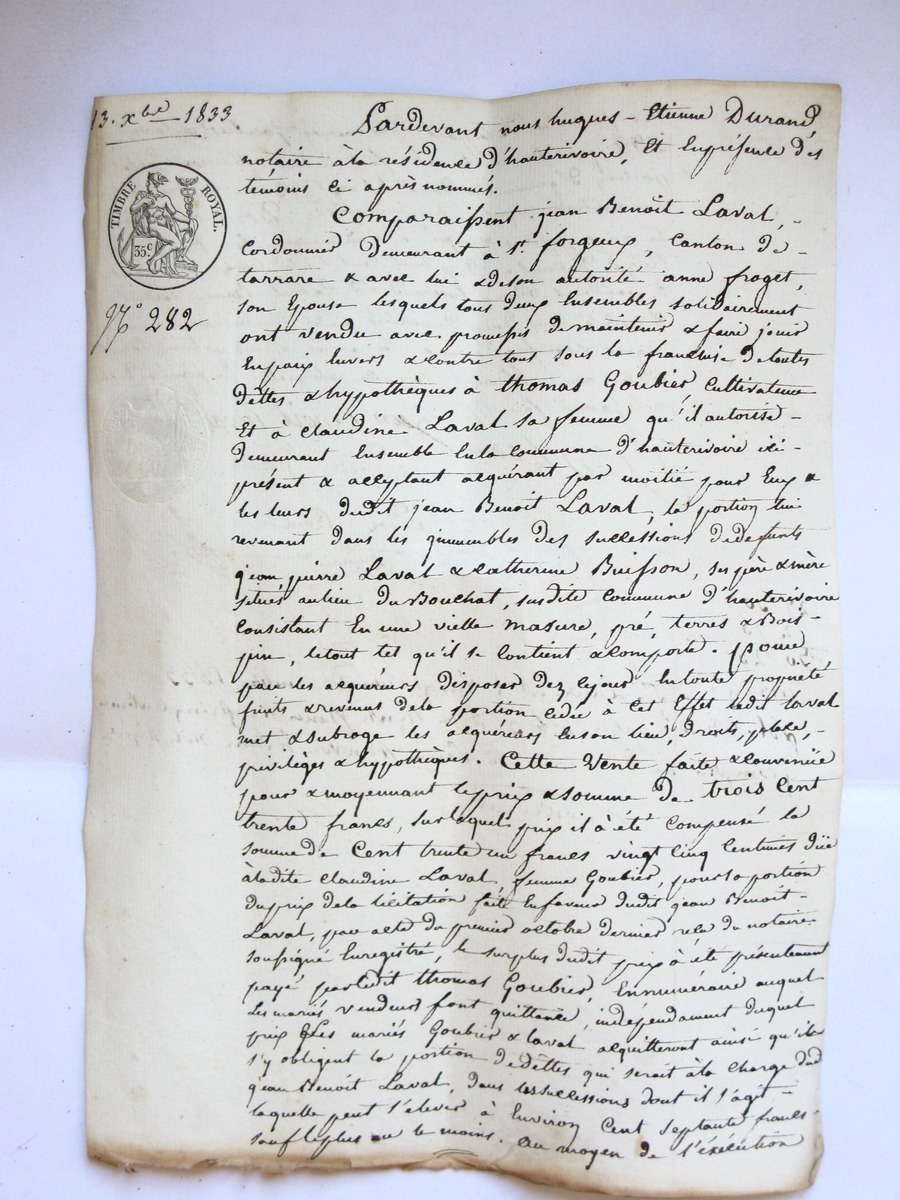 13. Xbre 1833
TIMBRE ROYAL.
35.C
N° 282
Pardevant nous hugues - Etienne Durand,
notaire à la résidence d'hauterivoire, Et En présence des
témoins ci après nommés.
Comparaissent jean Benoît Laval, -
Cordonnier Demeurant à St. forgeux, Canton de -
tarrare & avec lui & de son autorité anne froget,
son Epouse lesquels tous deux Ensembles solidairement
ont vendu avec promesse de maintenir & faire jouir
En paix Envers & contre tous sous la franchise de toutes
dettes & hypothèques à thomas Goubier, Cultivateur
Et à claudine Laval sa femme qu'il autorise -
demeurant Ensemble En la Commune d'hauterivoire ici -
présent & acceptant acquérant par moitié pour Eux &
les leurs dudit jean Benoît Laval, la portion lui
revenant dans les immeubles des successions de defunts
jean pierre Laval & catherine Buisson, ses père & mère
situés au lieu du Bouchat, susdite Commune d'hauterivoire
Consistant En une vielle masure, pré, terres & Bois -
pin, le tout tel qu'il se Contient & comporte. pour
par les acquéreurs disposer dez ce jour En toute propriété
fruits & revenus de la portion cédée à cet Effet ledit Laval
met & subroge les acquéreurs En son lieu, droits, place, -
privilèges & hypothèques. Cette Vente faite & convenüe
pour & moyennant le prix & somme de trois Cent
trente francs, sur lequel prix il à été Compensé la
somme de Cent trente un francs vingt cinq Centimes düe
à ladite claudine Laval, femme Goubier, pour sa portion
du prix de la licitation faite En faveur dudit jean Benoît -
Laval, par acte du premier octobre dernier reçu du notaire
soussigné Enregistré, le surplus dudit prix à été présentement
payé par ledit thomas Goubier, En numéraire auquel
les mariés vendeurs font quittance, indépendament duquel
prix Les mariés Goubier & Laval acquitteront ainsi qu'ils
s'y obligent la portion de dettes qui serait à la charge dud
jean Benoît Laval, dans les successions dont il s'agit -
laquelle peut s'élever à Environ Cent septante francs -
sauf le plus ou le moins. au moyen de l'exécution